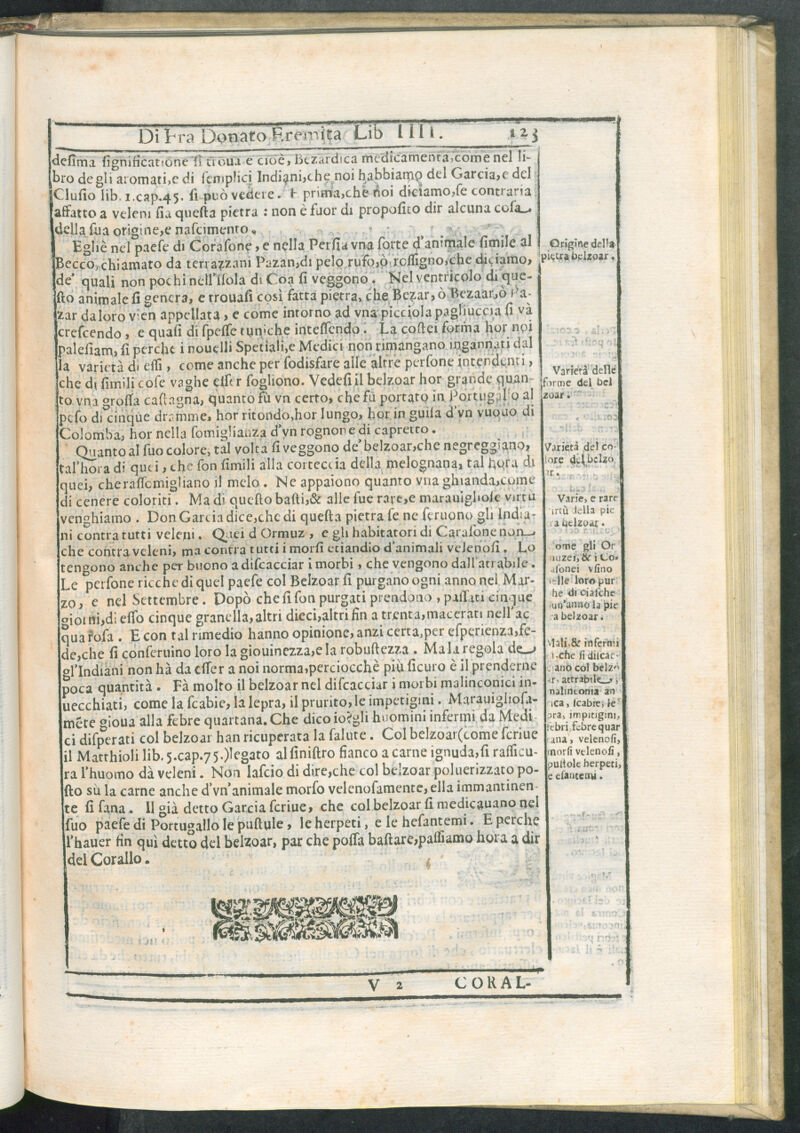 Di Fra Donato Eremita Lib IIII. 123
desima significatione si troua e cioè, Bezardica medicamenta, come nel li-
bro degli aromati, e di semplici Indiani, che noi habbiamo del Garcia, e del
Clusio lib. 1. cap. 45. si può vedere. E prima, che noi diciamo, se contraria
affatto a veleni sia questa pietra : non è fuor di proposito dir alcuna cosa
della sua origine, e nascimento.
Egliè nel paese di Corasone, e nella Persia vna sorte d'animale simile al
Becco, chiamato da terrazzani Pazan, di pelo rufo, ò rossigno, che diciamo,
de' quali non pochi nell'Isola di Coa si veggono. Nel ventricolo di que-
sto animale si genera, e trouasi così fatta pietra, che Bezar, ò Bezaar, ò Pa-
zar da loro vien appellata, e come intorno ad vna picciola pagliuccia si va
crescendo, e quasi di spesse tuniche intessendo. La costei forma hor noi
palesiam, sì perche i nouelli Spetiali, e Medici non rimangano ingannati dal
la varietà di essi, come anche per sodisfare alle altre persone intendenti,
che di simili cose vaghe esser sogliono. Vedesi il belzoar hor grande quan-
to vna grossa castagna, quanto fù vn certo, che fù portato in Portugallo al
peso di cinque dramme, hor ritondo, hor lungo, hor in guisa d'vn vuouo di
Colomba, hor nella somiglianza d'vn rognone di capretto.
Quanto al suo colore, tal volta si veggono de' belzoar, che negreggiano,
tal'hora di quei, che son simili alla corteccia della melognana, tal hora di
quei, che rassomigliano il melo. Ne appaiono quanto vna ghianda, come
di cenere coloriti. Ma di questo basti, & alle sue rare, e marauigliose virtù
venghiamo. Don Garcia dice, che di questa pietra se ne seruono gl'India-
ni contra tutti veleni. Quei d'Ormuz, e gli habitatori di Carasone non
che contra veleni, ma contra tutti i morsi etiandio d'animali velenosi. Lo
tengono anche per buono a discacciar i morbi, che vengono dall'atrabile.
Le persone ricche di quel paese col Belzoar si purgano ogni anno nel Mar-
zo, e nel Settembre. Dopò che si son purgati prendono, passati cinque
giorni, di esso cinque granella, altri dieci, altri fin a trenta, macerati nell'ac
qua rosa. E con tal rimedio hanno opinione, anzi certa, per esperienza, fe-
de, che si conseruino loro la giouinezza, e la robustezza. Ma la regola de
gl'Indiani non hà da esser a noi norma, perciocchè più sicuro è il prenderne
poca quantità. Fà molto il belzoar nel discacciar i morbi malinconici in-
uecchiati, come la scabie, la lepra, il prurito, le impetigini. Marauigliosa-
mẽte gioua alla febre quartana. Che dico io? gli huomini infermi da Medi
ci disperati col belzoar han ricuperata la salute. Col belzoar (come scriue
il Matthioli lib. 5. cap. 75.) legato al sinistro fianco a carne ignuda, si rassicu-
ra l'huomo dà veleni. Non lascio di dire, che col belzoar poluerizzato po-
sto sù la carne anche d'vn'animale morso velenosamente, ella immantinen-
te si sana. Il già detto Garcia scriue, che col belzoar si medicauano nel
suo paese di Portugallo le pustule, le herpeti, e le hesantemi. E perche
l'hauer fin quì detto del belzoar, par che possa bastare, passiamo hora a dir
del Corallo.
Origine della
pietra belzoar.
Varietà delle
forme del bel
zoar.
Varietà del co-
lore del belzo
ar.
Varie, e rare
virtù della pie
ra belzoar.
ome gli Or
muzei, & i Co-
rasonei vsino
elle loro pur
he di ciasche
un'anno la pie
ra belzoar.
Mali, & infermi
che si discac-
ano col belzo
ar, attrabile,
malinconia an
ica, scabie, le
pra, impitigini,
febri, febre quar
ana, velenosi,
morsi velenosi,
pustole herpeti,
e esantemi.
V 2 CORAL-